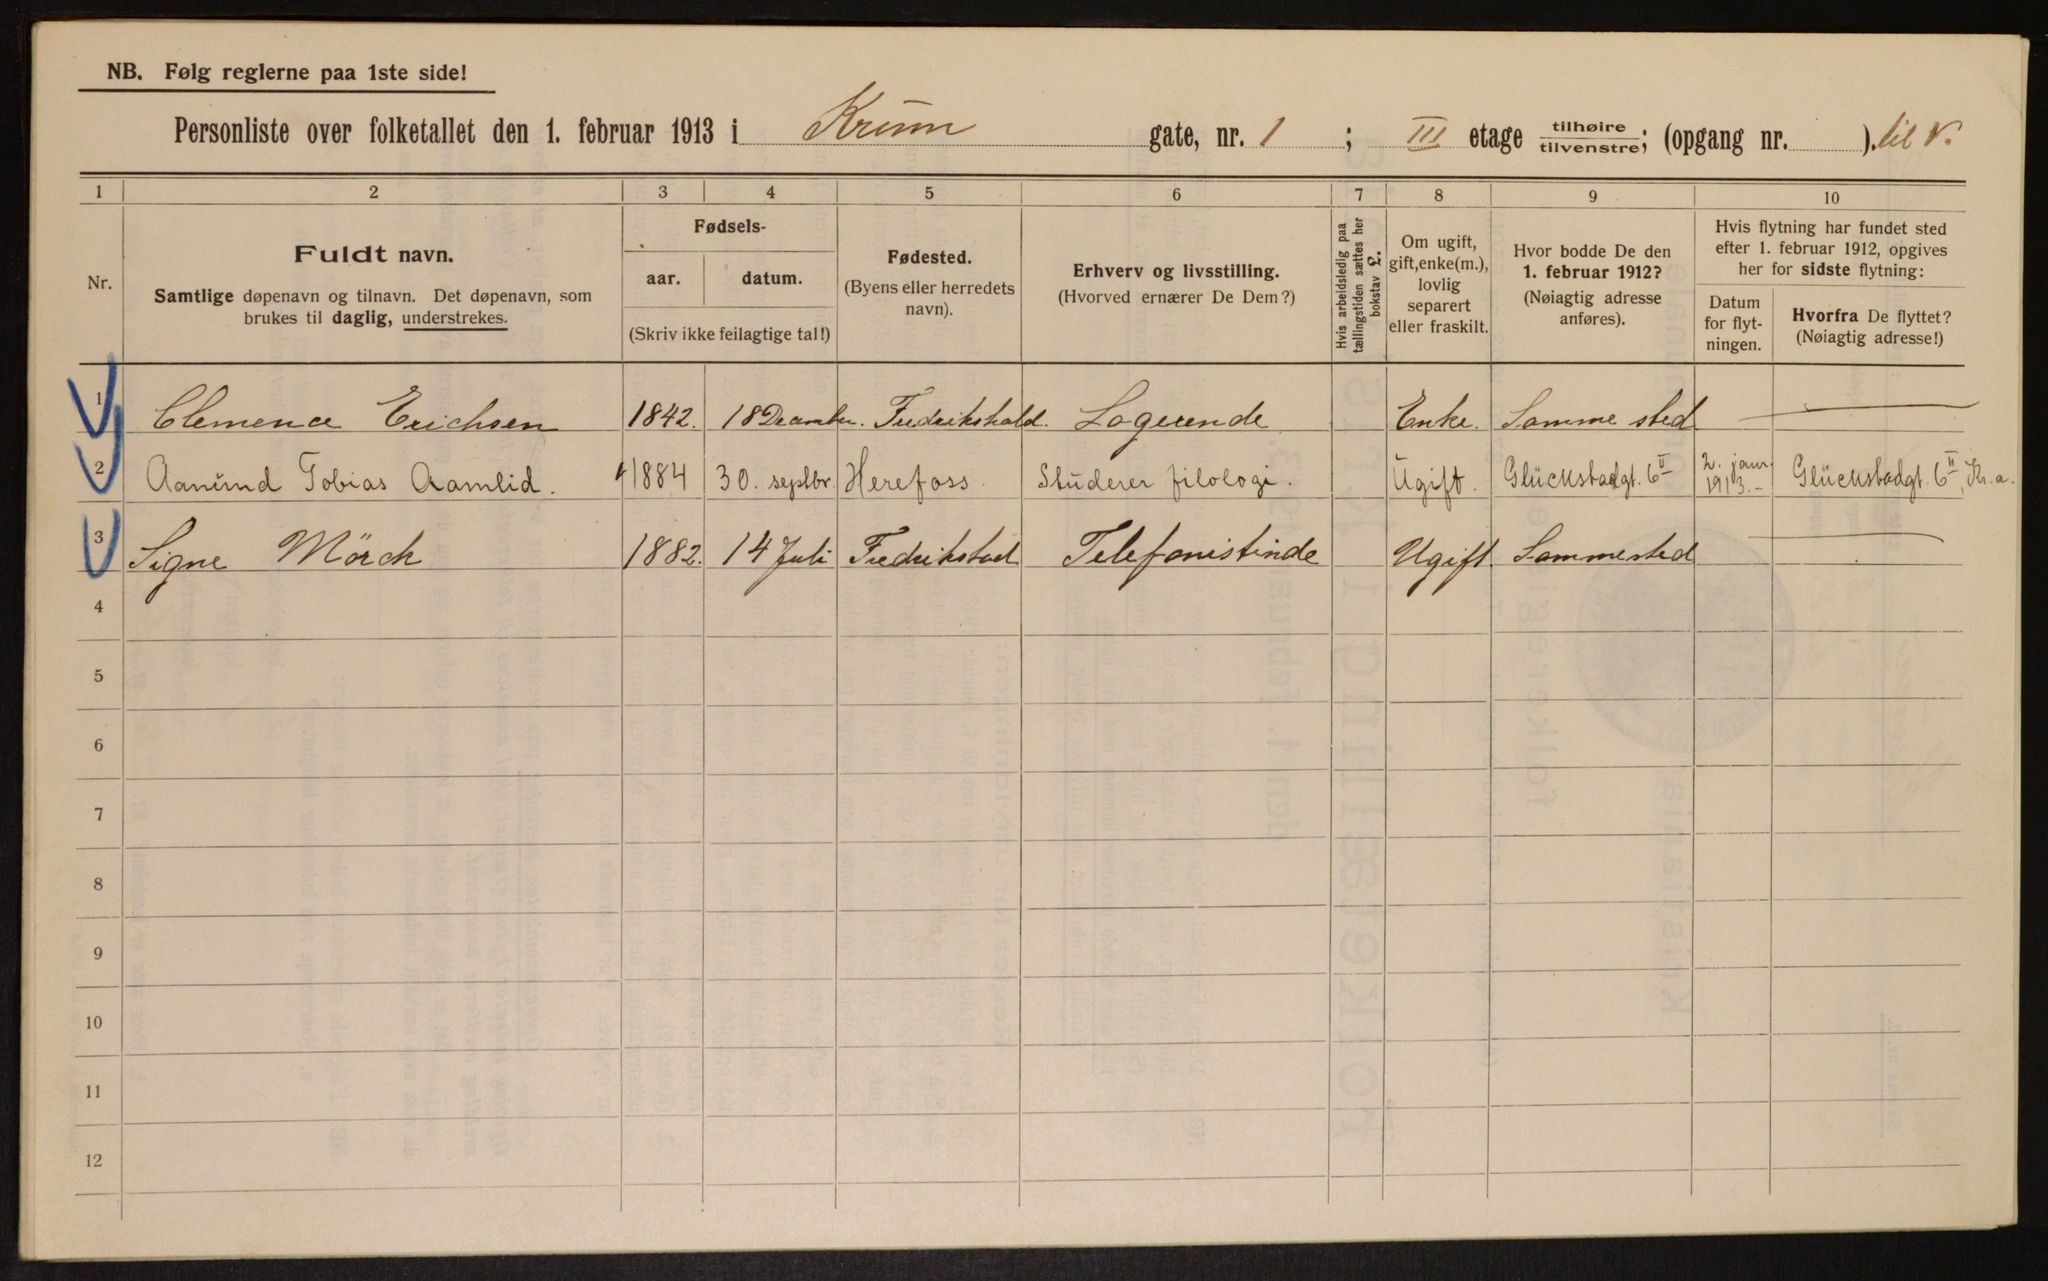 NB. Følg reglerne paa 1ste side!
Personliste over folketallet den 1. februar 1913 i Krumm gate, nr. 1 ; III etage tilhøire tilvenstre; (opgang nr. ). til V.
1 2 3 4 5 6 7 8 9 10
Nr.
Fuldt navn.
Samtlige døpenavn og tilnavn. Det døpenavn, som
brukes til daglig, understrekes.
Fødsels-
aar. datum.
(Skriv ikke feilagtige tal!)
Fødested.
(Byens eller herredets
navn).
Erhverv og livsstilling.
(Hvorved ernærer De Dem?)
Hvis arbeidsledig paa
tællingstiden sættes her
bokstav L.
Om ugift,
gift, enke(m.),
lovlig
separert
eller fraskilt.
Hvor bodde De den
1. februar 1912?
(Nøiagtig adresse
anføres).
Hvis flytning har fundet sted
efter 1. februar 1912, opgives
her for sidste flytning:
Datum
for flyt-
ningen.
Hvorfra De flyttet?
(Nøiagtig adresse!)
1 Clemence Erichsen 1842. 18 December. Fredrikshald. Logerende Enke. Samme sted
2 Aanund Tobias Aamlid. 1884 30. septbr. Herefoss. Studerer filologi. Ugift. Glückstadgt. 6 II 2. jan. 1913.- Glückstadgt. 6 II, Kr.a.
3 Signe Mörch 1882. 14 Juli Fredrikstad Telefonistinde Ugift. Sammested
4
5
6
7
8
9
10
11
12